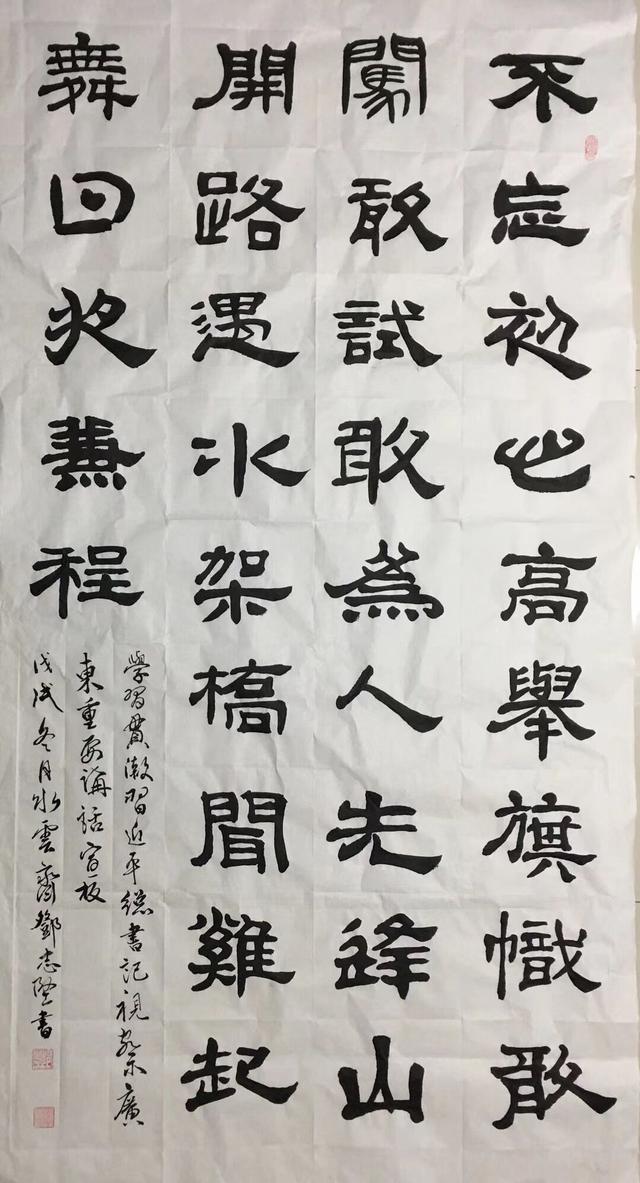 不忘初心高舉旗幟敢
闖敢試敢為人先逢山
開路遇水架橋聞雞起
舞日夜兼程
學習貫澈習近平總書記視察廣
東重要講話宣板
戊戌冬月水雲齋鄧志書